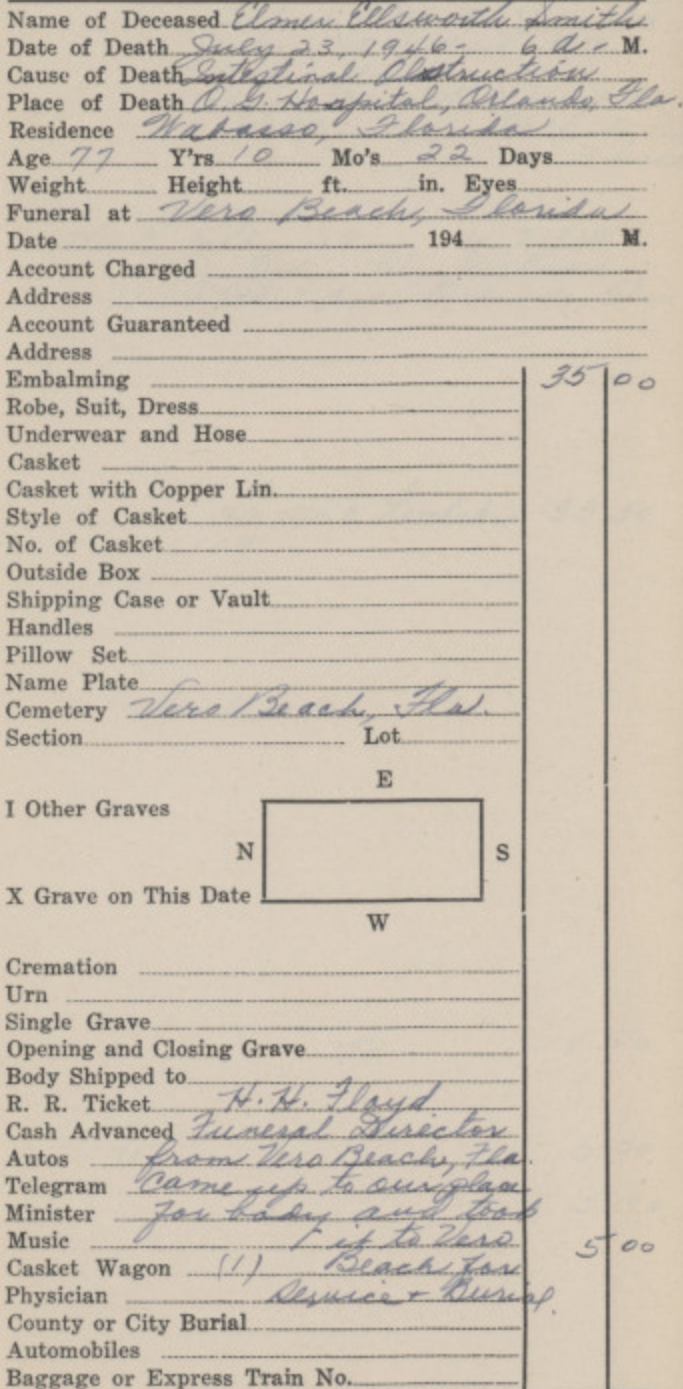 Name of Deceased Elmer Ellsworth Smith
Date of Death July 23, 1946 - 6 a. M.
Cause of Death Intestinal Obstruction
Place of Death O. G. Hospital, Orlando, Fla.
Residence Wabasso, Florida
Age 77 Y'rs 10 Mo's 22 Days
Weight Height ft. in. Eyes
Funeral at Vero Beach, Florida
Date 194 M.
Account Charged
Address
Account Guaranteed
Address
Embalming 35 00
Robe, Suit, Dress
Underwear and Hose
Casket
Casket with Copper Lin.
Style of Casket
No. of Casket
Outside Box
Shipping Case or Vault
Handles
Pillow Set
Name Plate
Cemetery Vero Beach, Fla.
Section Lot
E
I Other Graves
N S
X Grave on This Date
W
Cremation
Urn
Single Grave
Opening and Closing Grave
Body Shipped to
R. R. Ticket H. H. Floyd
Cash Advanced Funeral Director
Autos from Vero Beach, Fla.
Telegram Came up to our place
Minister for body and took
Music it to Vero 5 00
Casket Wagon (1) Beach for
Physician Service + Burial.
County or City Burial
Automobiles
Baggage or Express Train No.